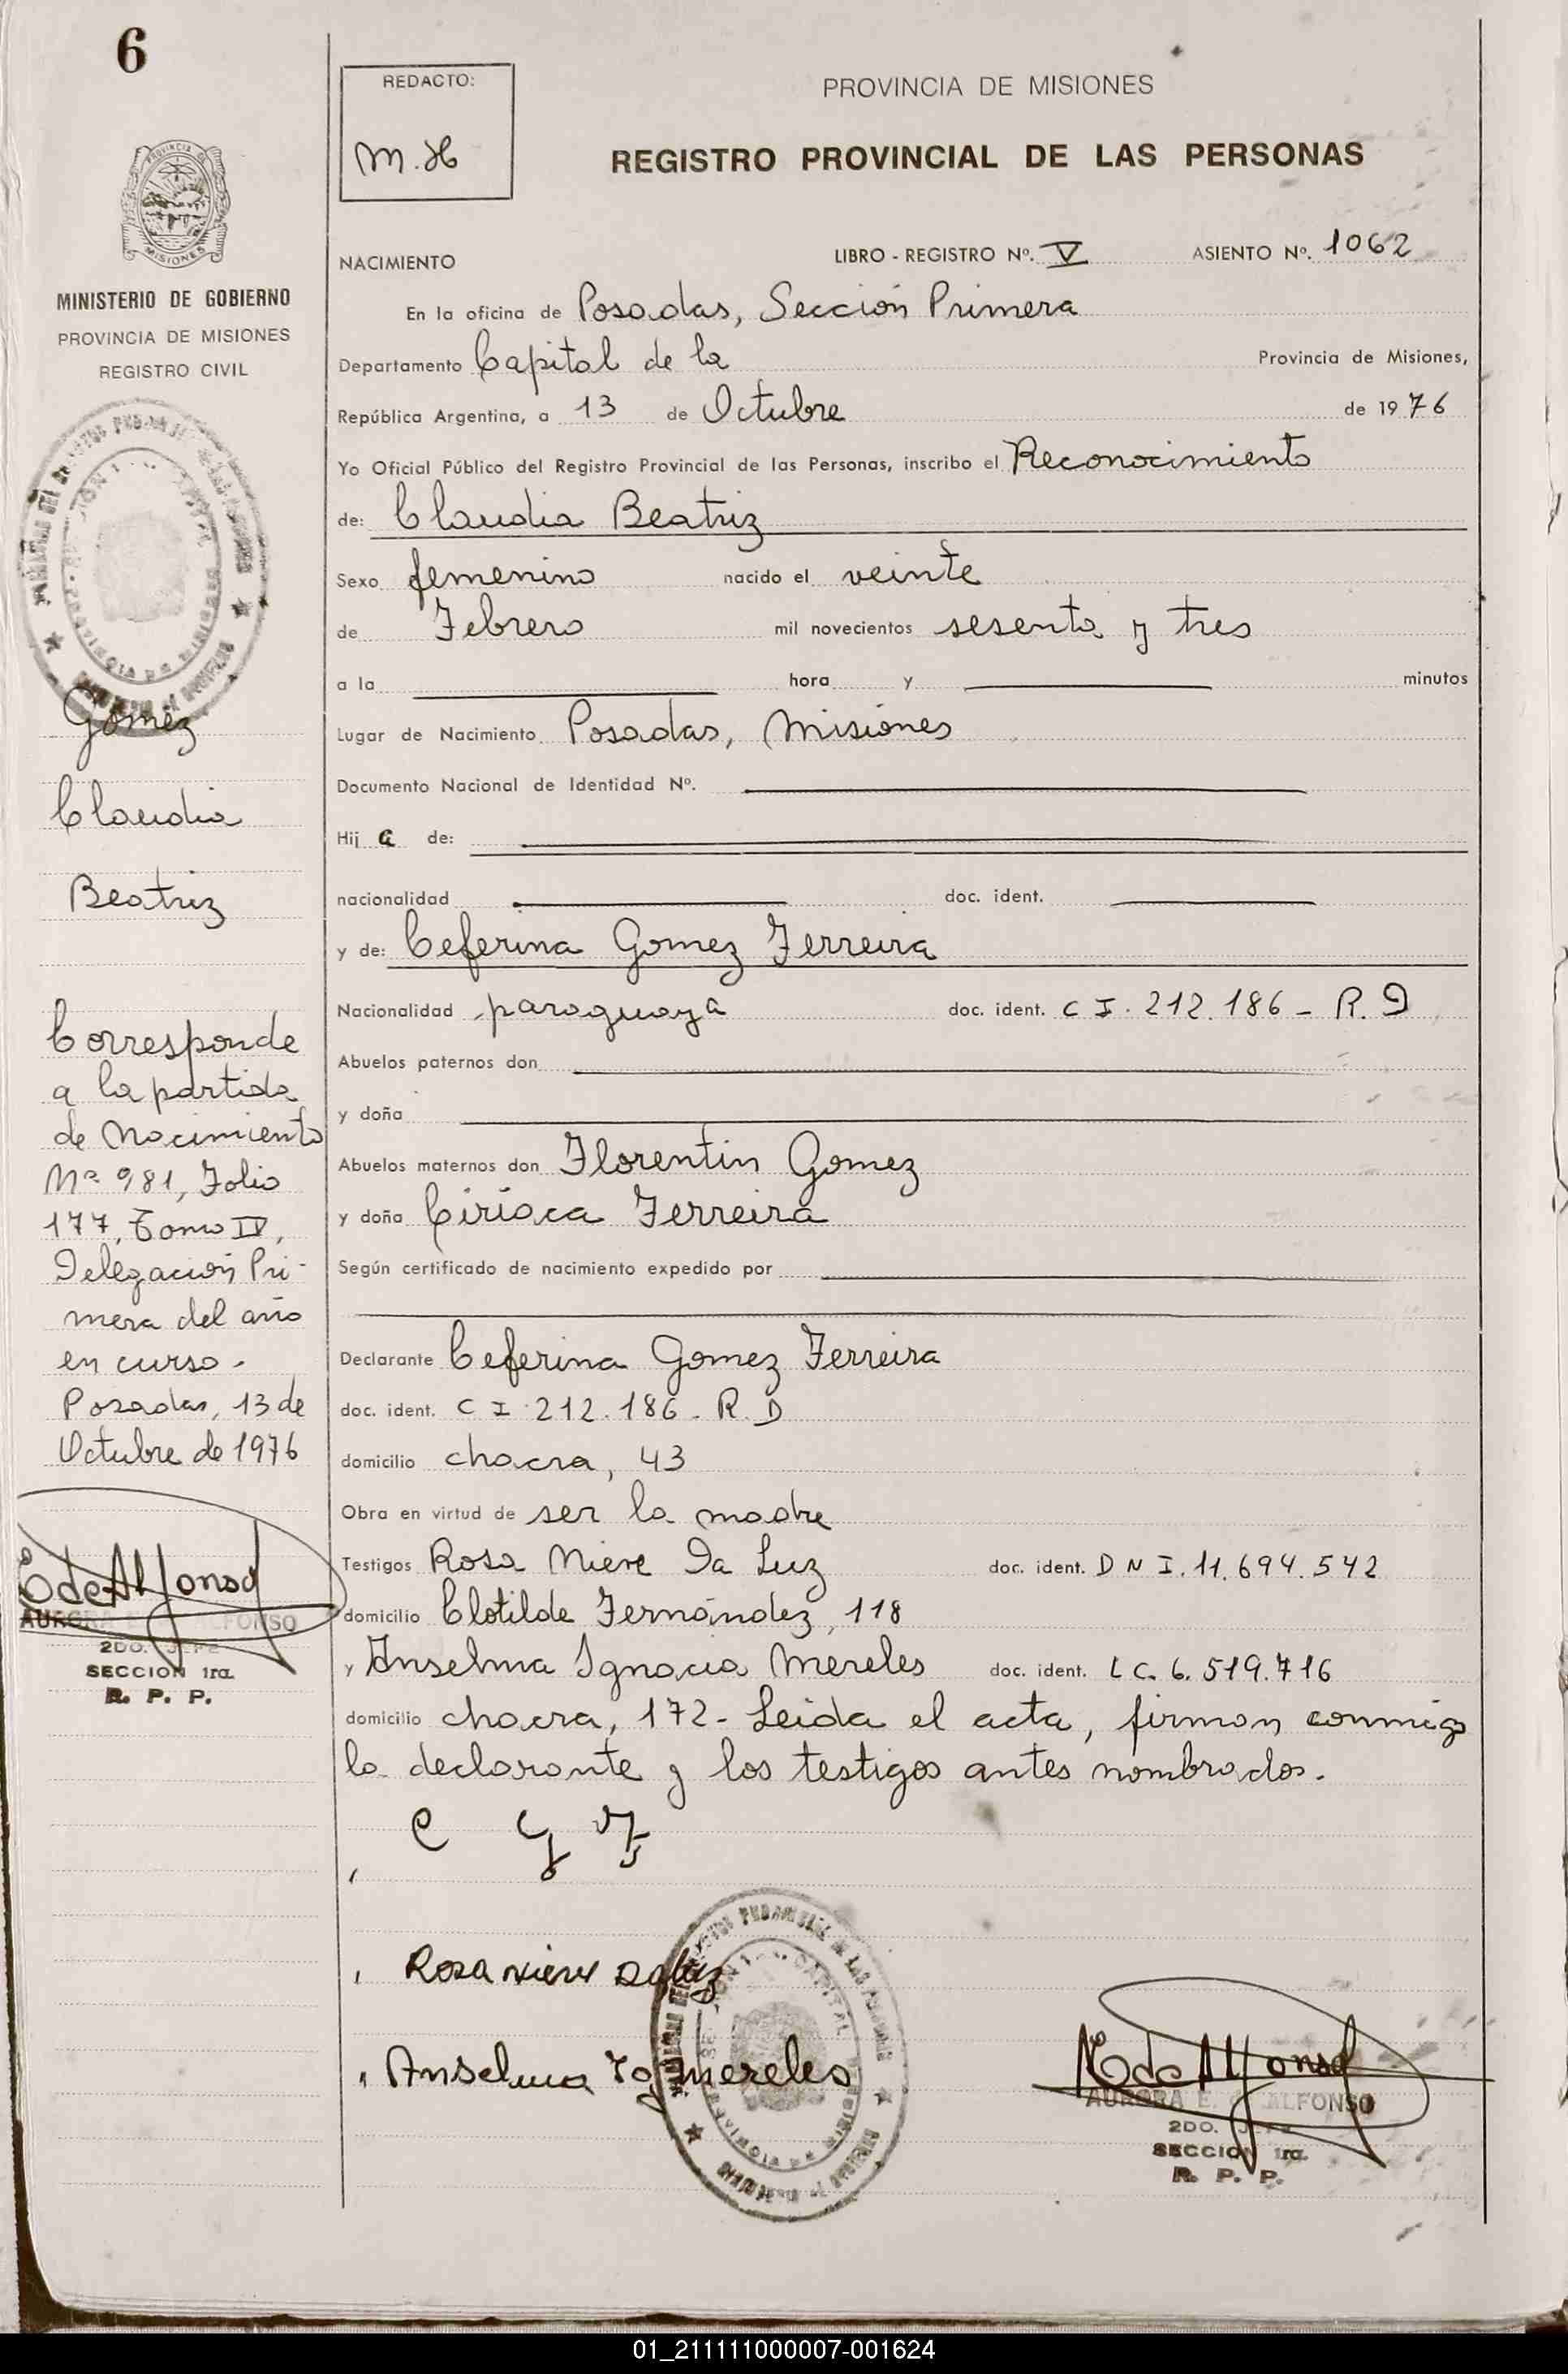 6
REDACTO:
M. H
PROVINCIA DE MISIONES
REGISTRO PROVINCIAL DE LAS PERSONAS
PROVINCIA DE
MISIONES
MINISTERIO DE GOBIERNO
PROVINCIA DE MISIONES
REGISTRO CIVIL
Gomez
Claudia
Beatriz
Corresponde
a la partida
de Nacimiento
Nº 981, Folio
177, Tomo IV,
Delegación Pri-
mera del año
en curso.
Posadas, 13 de
Octubre de 1976
E de Alfonso
AURORA ALFONSO
2DO. JEFE
SECCION 1ra.
R. P. P.
NACIMIENTO LIBRO - REGISTRO Nº. V ASIENTO Nº. 1062
En la oficina de Posadas, Sección Primera
Departamento Capital de la Provincia de Misiones,
República Argentina, a 13 de Octubre de 1976
Yo Oficial Público del Registro Provincial de las Personas, inscribo el Reconocimiento
de: Claudia Beatriz
Sexo femenino nacido el veinte
de Febrero mil novecientos sesenta y tres
a la hora y minutos
Lugar de Nacimiento Posadas, Misiones
Documento Nacional de Identidad Nº.
Hij a de:
nacionalidad doc. ident.
y de: Ceferina Gomez Ferreira
Nacionalidad paraguaya doc. ident. C I. 212.186 - R. D
Abuelos paternos don
y doña
Abuelos maternos don Florentin Gomez
y doña Ciriaca Ferreira
Según certificado de nacimiento expedido por
Declarante Ceferina Gomez Ferreira
doc. ident. C I. 212.186. R. D
domicilio chacra, 43
Obra en virtud de ser la madre
Testigos Rosa Nieve Da Luz doc. ident. D N I. 11.694.542
domicilio Clotilde Fernández, 118
y Anselma Ignacia Mereles doc. ident. L C. 6.519.716
domicilio chacra, 172- Leida el acta, firman conmigo
la declarante y los testigos antes nombrados.
C G F
Rosa nieve Daluz
Anselma Ig mereles
E de Alfonso
AURORA E. ALFONSO
2DO. JEFE
SECCION 1ra.
R. P. P.
01_211111000007-001624